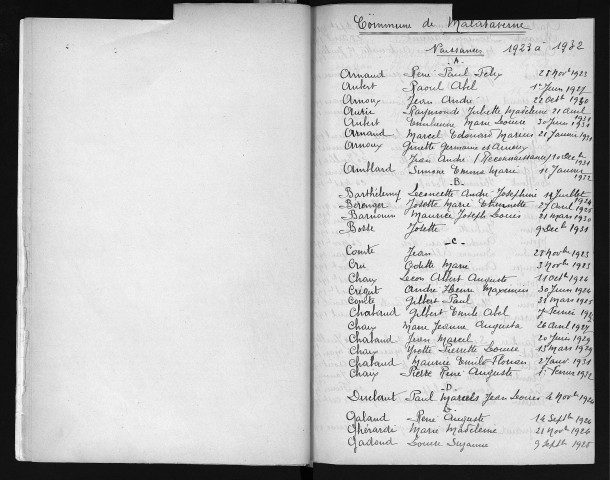 Commune de Malataverne
Naissances 1923 à 1932
-A-
Arnaud René Paul Felix 28 Novbre 1923
Aubert Raoul Abel 1er Juin 1927
Arnoux Jean André 22 Octb 1930
Raymonde Juliette Madeleine 21 Avril 1931
Aubert Emilienne Marie Louise 30 Juin 1931
Arnaud Marcel Edouard Marius 21 Janvier 1931
Arnoux Ginette Germaine et Arnoux
Jean André (Reconnaissance) 10 Decbre 1931
Amblard Simone Emma Marie 11 Janvier 1932
-B-
Barthélemy Leoncette André Joséphine 14 Juillet 1924
Berenger Josette Marie Etiennette 27 Avril 1926
Barnouin Maurice Joseph Louis 21 mars 1930
Josette 9 Decb 1931
-C-
Comte Jean 28 Novbre 1923
Cru Odette Marie 3 Novbre 1923
Chaix Leon Albert Auguste 11 Octbre 1926
André Henri Maximin 30 Juin 1926
Comte Gilbert Paul 31 mars 1925
Chabaud Gilbert Emile Abel 7 Fevrier
Chaix Marie Jeanne Augusta 26 Avril 1927
Chabaud Jean Marcel 20 Juin 1929
Chaix Yvette Pierrette Louise 15 Mars 1929
Chabaud Maurice Emile Florian 2 Janv 1931
Chaix Pierre René Auguste 1er Fevrier 1932
-D-
Paul Marcels Jean Louis 4 Novbre 1924
-G-
Galand René Auguste 14 Septbre 1926
Ghérardi Marie Madeleine 21 Novbre 1926
Gadoud Louise Suzanne 9 Septbre 1925